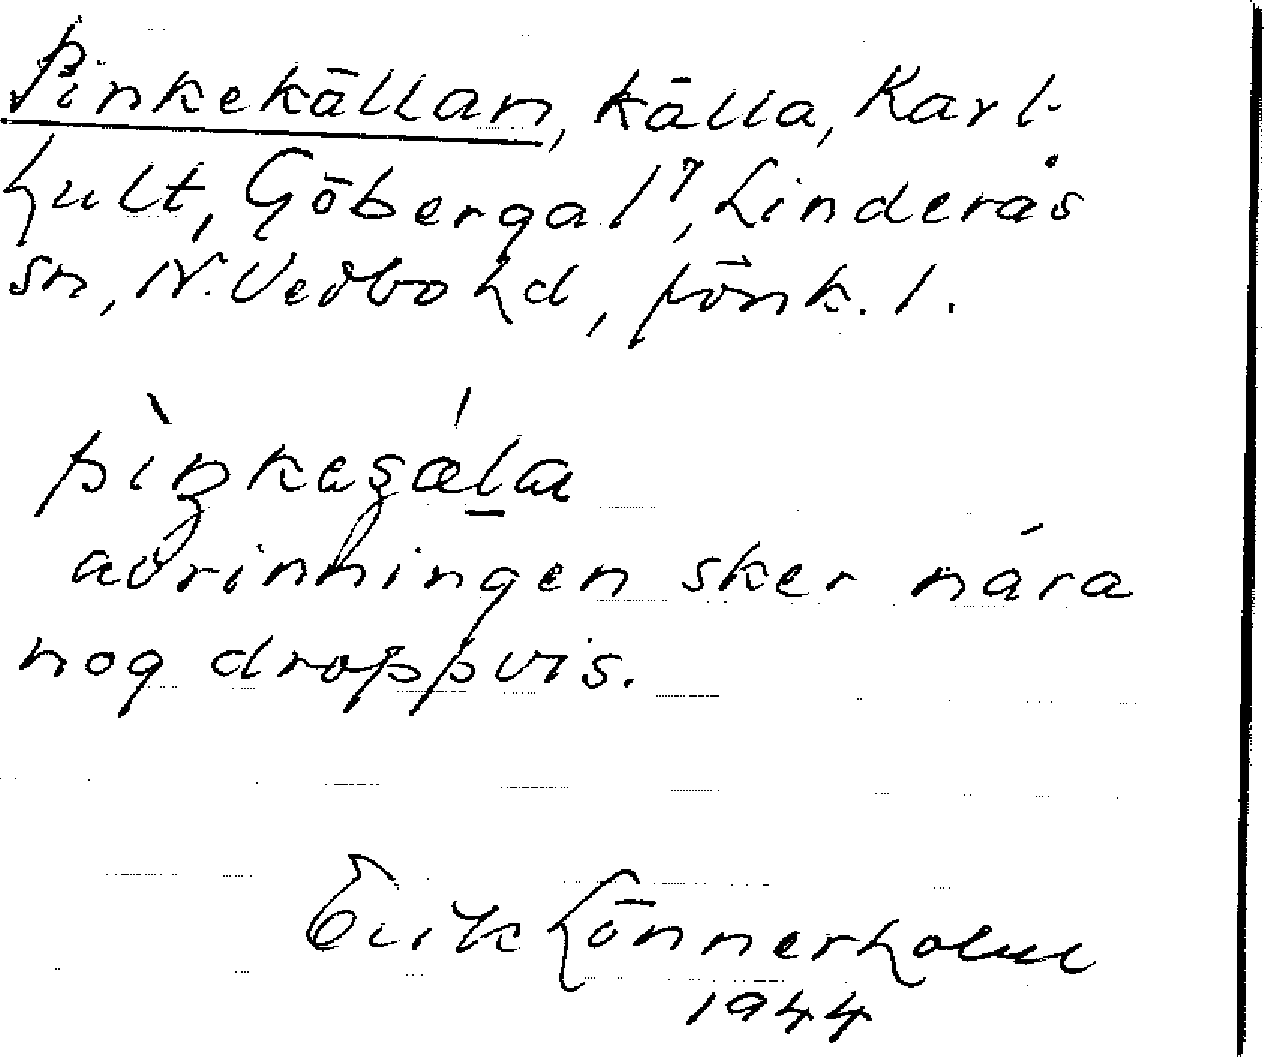 Pinkekällan, källa, Karl-
hult, Göberga 1⁷, Linderås
sn, N. Vedbo hd, Jönk. l.
pìŋkeɕǽla
avrinningen sker nära
nog droppvis.
Erik Lönnerholm
1944